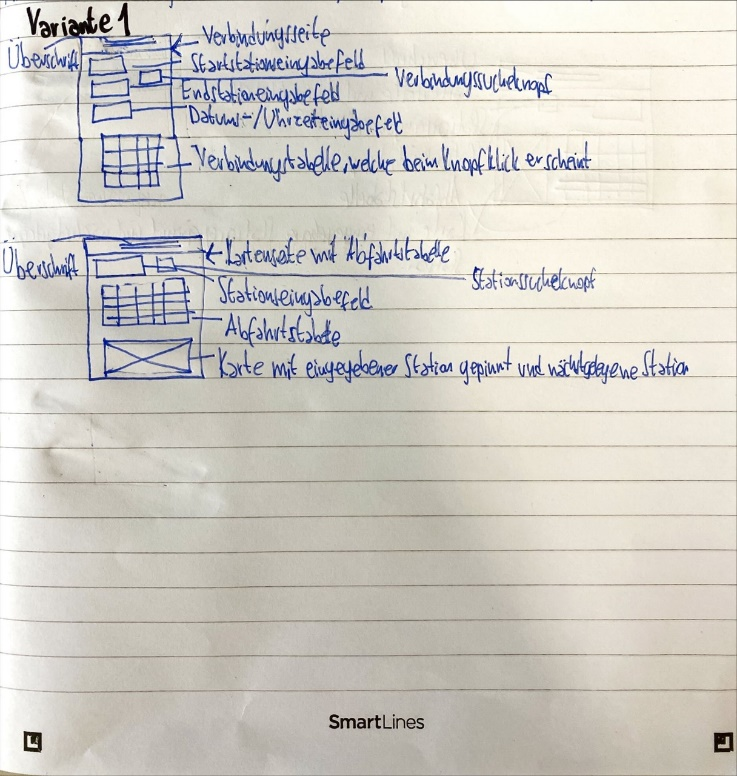 Variante 1
Verbindungsseite
Überschrift
Startstationseingabefeld
Verbindungssucheknopf
Endstationeingabefeld
Datums-/Uhrzeiteingabefeld
Verbindungstabelle, welche beim Knopfklick erscheint
Kartenseite mit Abfahrtstabelle
Überschrift
Stationssucheknopf
Stationseingabefeld
Abfahrtstabelle
Karte mit eingegebener Station gepinnt und nächstgelegene Station
SmartLines